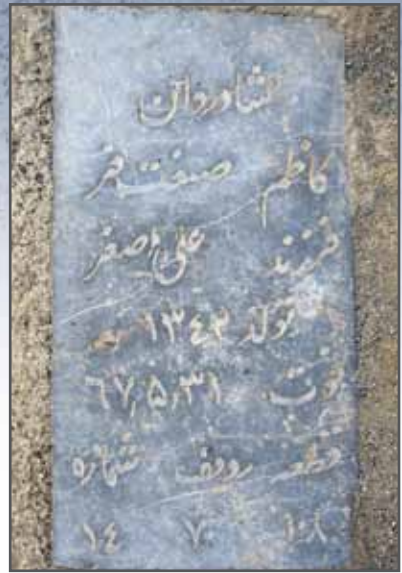 کاظم صفت فر
فرزند علی اصغر
تولد ۱۳۴۳
فوت ۶۷٫۵٫۳۱
قطعه ردیف شماره
۱۰۸ ۷۰ ۱٤